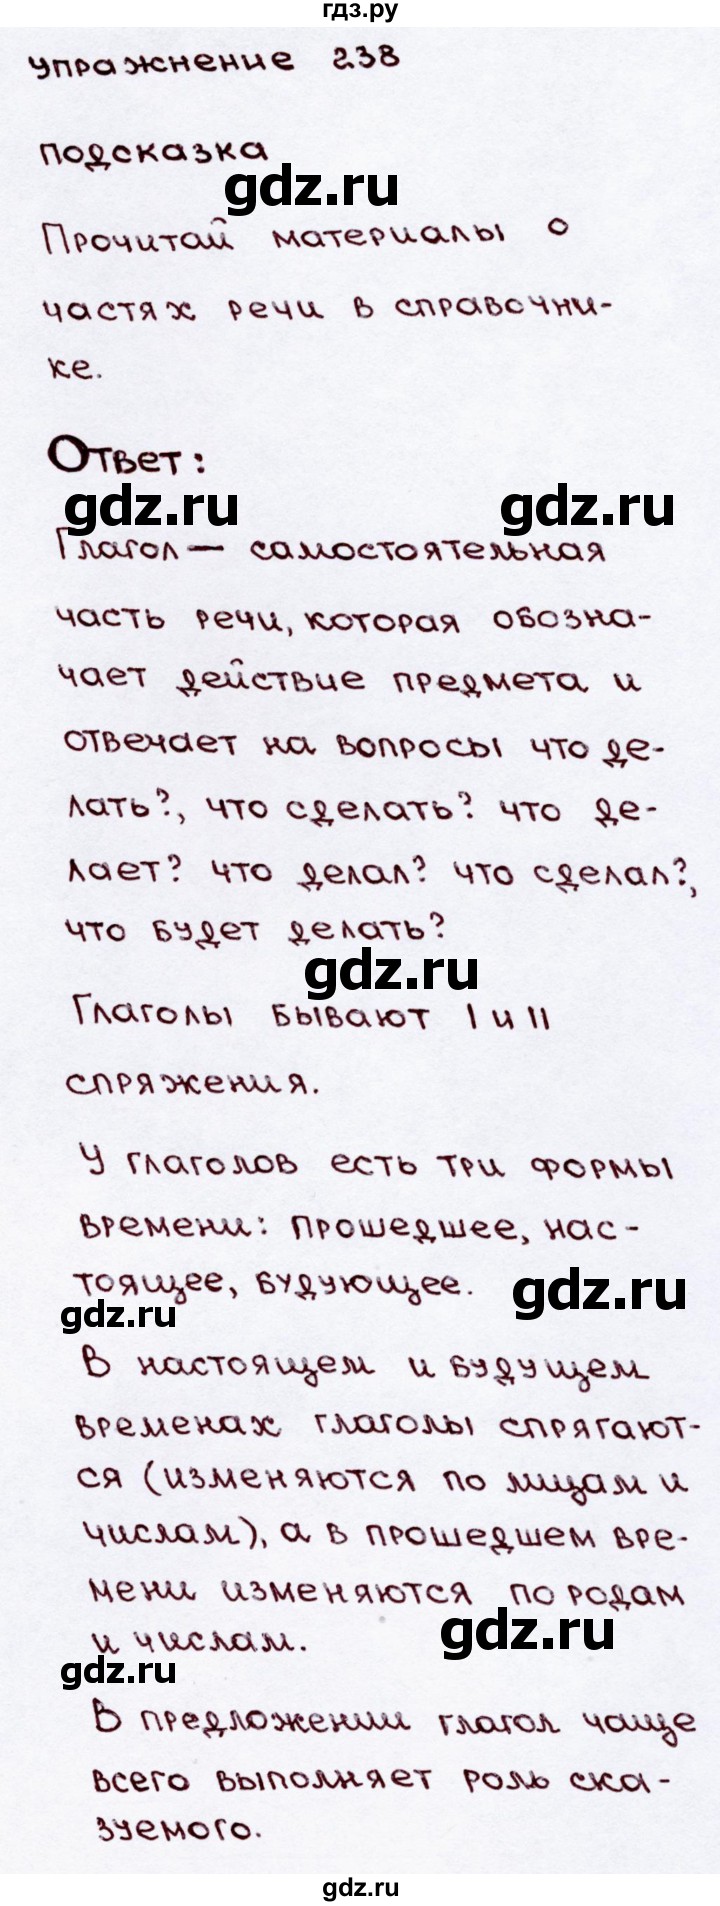 гдз.ру
упражнение 238
подсказка
gdz.ru
Прочитай материалы о
частях речи в справочни-
ке.
Ответ:
gdz.ru gdz.ru
Глагол — самостоятельная
часть речи, которая обозна-
чает действие предмета и
отвечает на вопросы что де-
лать?, что сделать? что де-
лает? что делал? что сделал?,
что будет делать?
gdz.ru
Глаголы бывают I и II
спряжения.
У глаголов есть три формы
времени: прошедшее, нас-
тоящее, будующее.
gdz.ru
gdz.ru
В настоящем и будущем
временах глаголы спрягают-
ся (изменяются по лицам и
числам), а в прошедшем вре-
мени изменяются по родам
и числам.
gdz.ru
gdz.ru
В предложении глагол чаще
всего выполняет роль ска-
зуемого.
gdz.ru